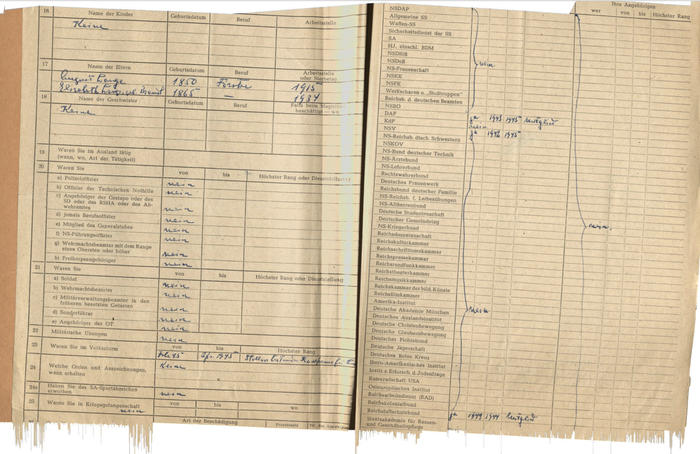 16 Name der Kinder Geburtsdatum Beruf Arbeitsstelle
Keine
17 Name der Eltern Geburtsdatum Beruf Arbeitsstelle
August 1850 1915
Elisabeth 1865 — 1937
18 Name der Geschwister Geburtsdatum Beruf
Keine
19 Waren Sie im Ausland tätig
(wann, wo, Art der Tätigkeit)
20 Waren Sie von bis Höchster Rang oder Dienststellung
a) Polizeioffizier nein
b) Offizier der Technischen Nothilfe nein
c) Angehöriger der Gestapo oder des
SD oder des RSHA oder des Ab-
wehramtes nein
d) jemals Berufsoffizier nein
e) Mitglied des Generalstabes nein
f) NS-Führungsoffizier nein
g) Wehrmachtsbeamter mit dem Range
eines Obersten oder höher nein
h) Freikorpsangehöriger nein
21 Waren Sie von bis Höchster Rang oder Dienststellung
a) Soldat nein
b) Wehrmachtsbeamter nein
c) Militärverwaltungsbeamter in den
früheren besetzten Gebieten nein
d) Sonderführer nein
e) Angehöriger der OT nein
22 Militärische Übungen nein
23 Waren Sie im Volkssturm von bis Höchster Rang
1945
24 Welche Orden und Auszeichnungen,
wann erhalten Keine
24a Haben Sie das SA-Sportabzeichen
erworben nein
25 Waren Sie in Kriegsgefangenschaft von bis wo
nein
Art der Beschädigung
Ihre Angehörigen
wer von bis Höchster Rang
NSDAP
Allgemeine SS
Waffen-SS
Sicherheitsdienst der SS
SA
HJ. einschl. BDM
NSDStB
NSDoB
NS-Frauenschaft
NSKK
NSFK
nein
Reichsb. d. deutschen Beamten
NSBO
DAF ja 1945 Mitglied
KdF nein
NSV ja 1945
NS-Reichsb. dtsch. Schwestern
NSKOV
NS-Bund deutscher Technik
NS-Ärztebund
NS-Lehrerbund
Rechtswahrerbund
Deutsches Frauenwerk
Reichsbund deutscher Familie
NS-Reichsb. f. Leibesübungen
NS-Altherrenbund
Deutsche Studentenschaft
Deutscher Gemeindetag
NS-Kriegerbund
nein.
Reichsdozentenschaft
Reichskulturkammer
Reichsschrifttumskammer
Reichspressekammer
Reichsrundfunkkammer
Reichstheaterkammer
Reichsmusikkammer
Reichskammer der bild. Künste
Reichsfilmkammer
Amerika-Institut
Deutsche Akademie München nein
Deutsches Auslandsinstitut
Deutsche Christenbewegung
Deutsche Glaubensbewegung
Deutscher Fichtebund
Deutsche Jägerschaft
Deutsches Rotes Kreuz
Ibero-Amerikanisches Institut
Instit. z. Erforsch. d. Judenfrage
Kameradschaft USA
Osteuropäisches Institut
Reichsarbeitsdienst (RAD)
Reichskolonialbund
Reichsluftschutzbund ja 1944 Mitglied
Staatsakademie für Rassen-
und Gesundheitspflege